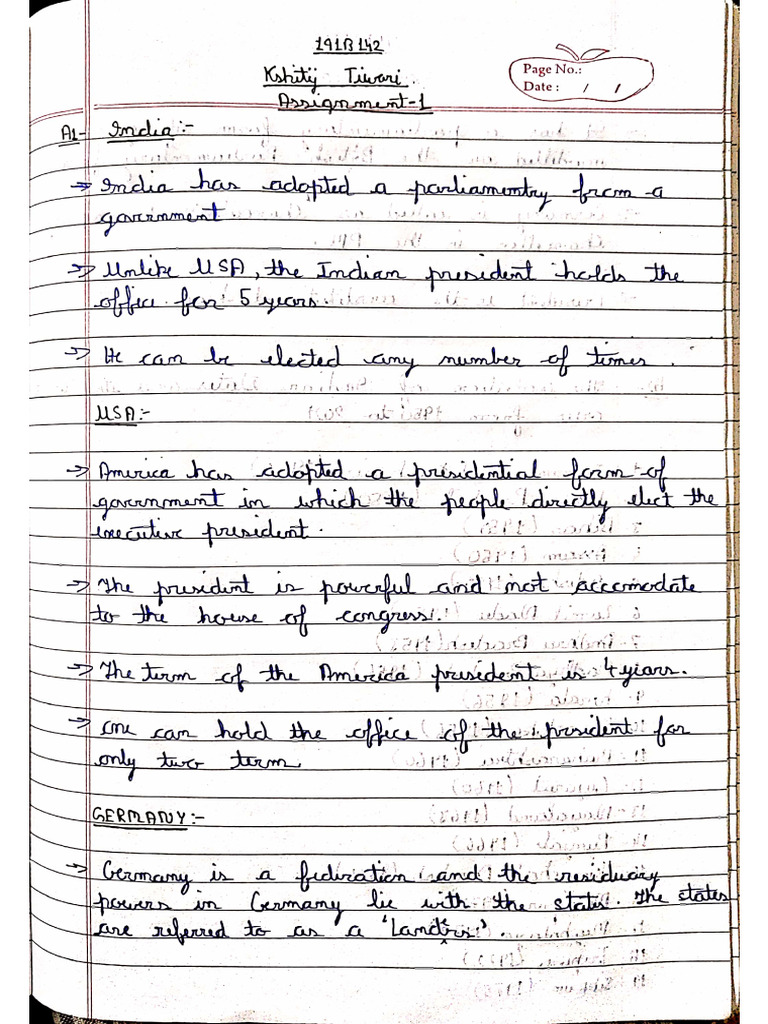 191B142
Kshitij Tiwari.
Assignment-1
Page No.:
Date : / /
A1- India:-
→ India has adopted a parliamentry from a
government.
→ Unlike USA, the Indian president holds the
office for 5 years.
→ He can be elected any number of times.
USA:-
→ America has adopted a presidential form of
government in which the people directly elect the
executive president.
→ The president is powerful and not accomodate
to the house of congress.
→ The term of the America president is 4 years.
→ One can hold the office of the president for
only two term.
GERMANY:-
→ Germany is a federation and the residuary
powers in Germany lie with the states. The states
are referred to as a 'Landers'.